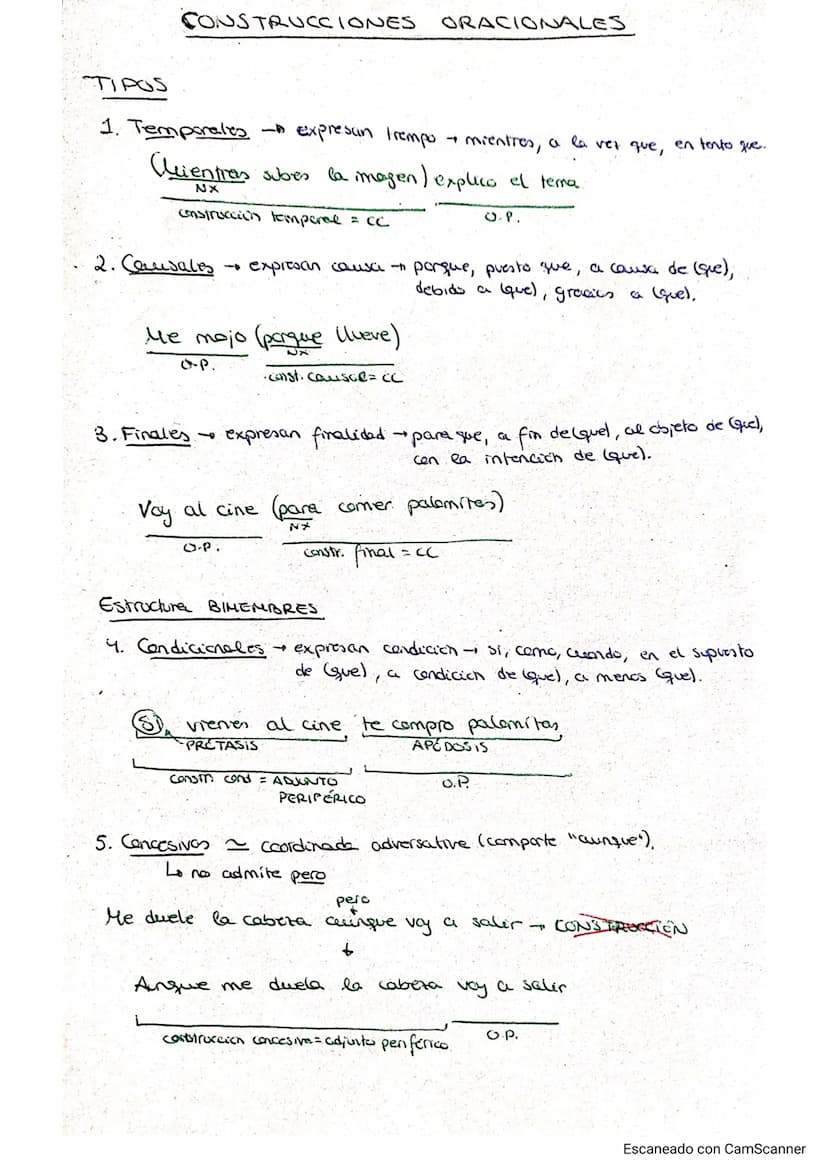 CONSTRUCCIONES ORACIONALES
TIPOS
1. Temporales → expresan tiempo → mientras, a la vez que, en tanto que.
(Mientras subes la imagen) explico el tema
NX
construcción temporal = CC
O.P.
2. Causales → expresan causa → porque, puesto que, a causa de (que),
debido a (que), gracias a (que).
Me mojo (porque llueve)
NX
O.P.
const. causal = CC
3. Finales → expresan finalidad → para que, a fin de (que), al objeto de (que),
con la intención de (que).
Voy al cine (para comer palomitas)
NX
O.P.
constr. final = CC
Estructura BIMEMBRES
4. Condicionales → expresan condición → si, como, cuando, en el supuesto
de (que), a condición de (que), a menos (que).
Si vienes al cine, te compro palomitas
PRÓTASIS APÓDOSIS
Constr. cond = ADJUNTO O.P.
PERIFÉRICO
5. Concesivas ≃ coordinada adversativa (comparte "aunque").
↳ no admite pero
pero
Me duele la cabeza aunque voy a salir → CONSTRUCCIÓN
↓
Aunque me duela la cabeza voy a salir
construcción concesiva = adjunto periférico O.P.
Escaneado con CamScanner